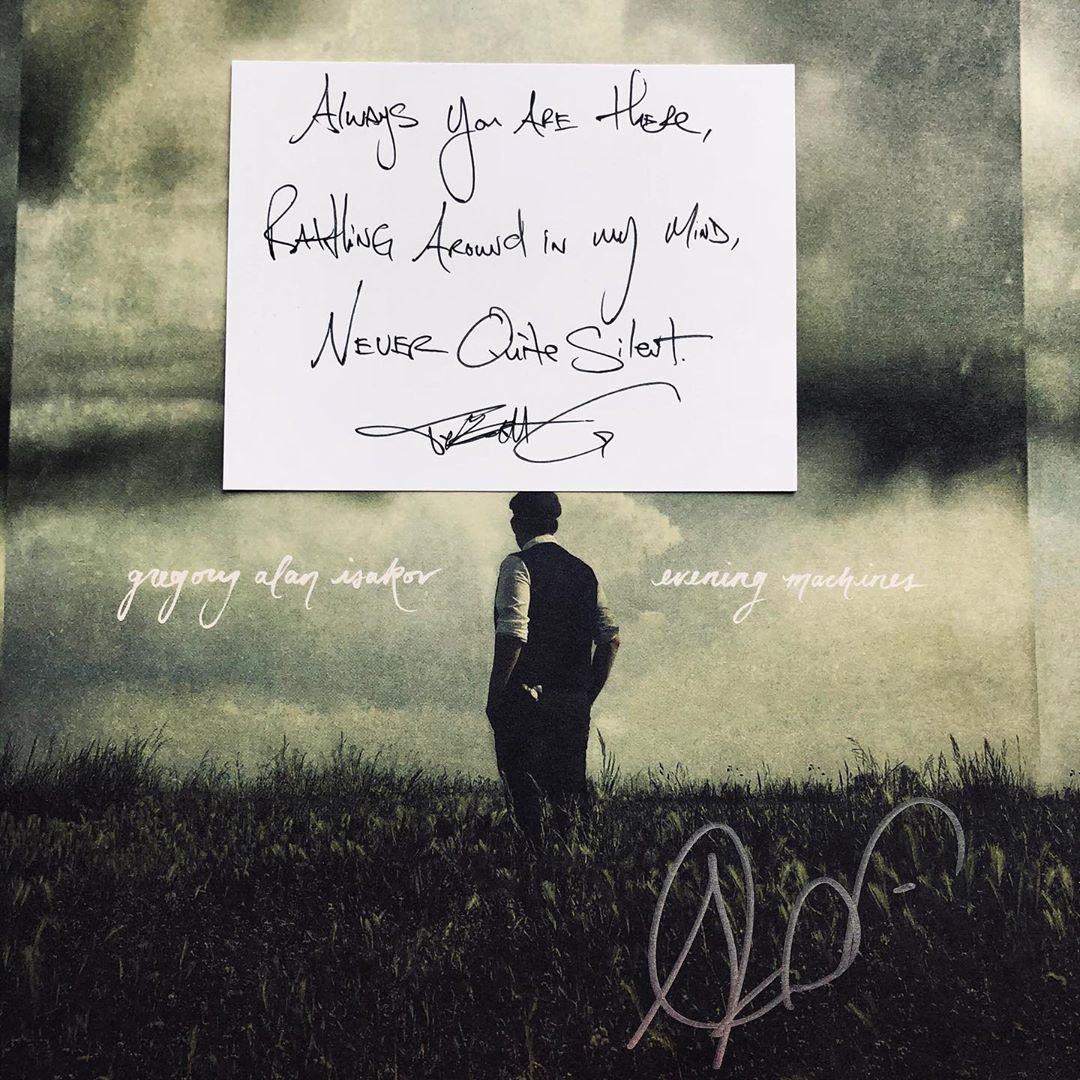 Always you are there,
Rattling Around in my Mind,
Never Quite Silent.
gregory alan isakov
evening machines